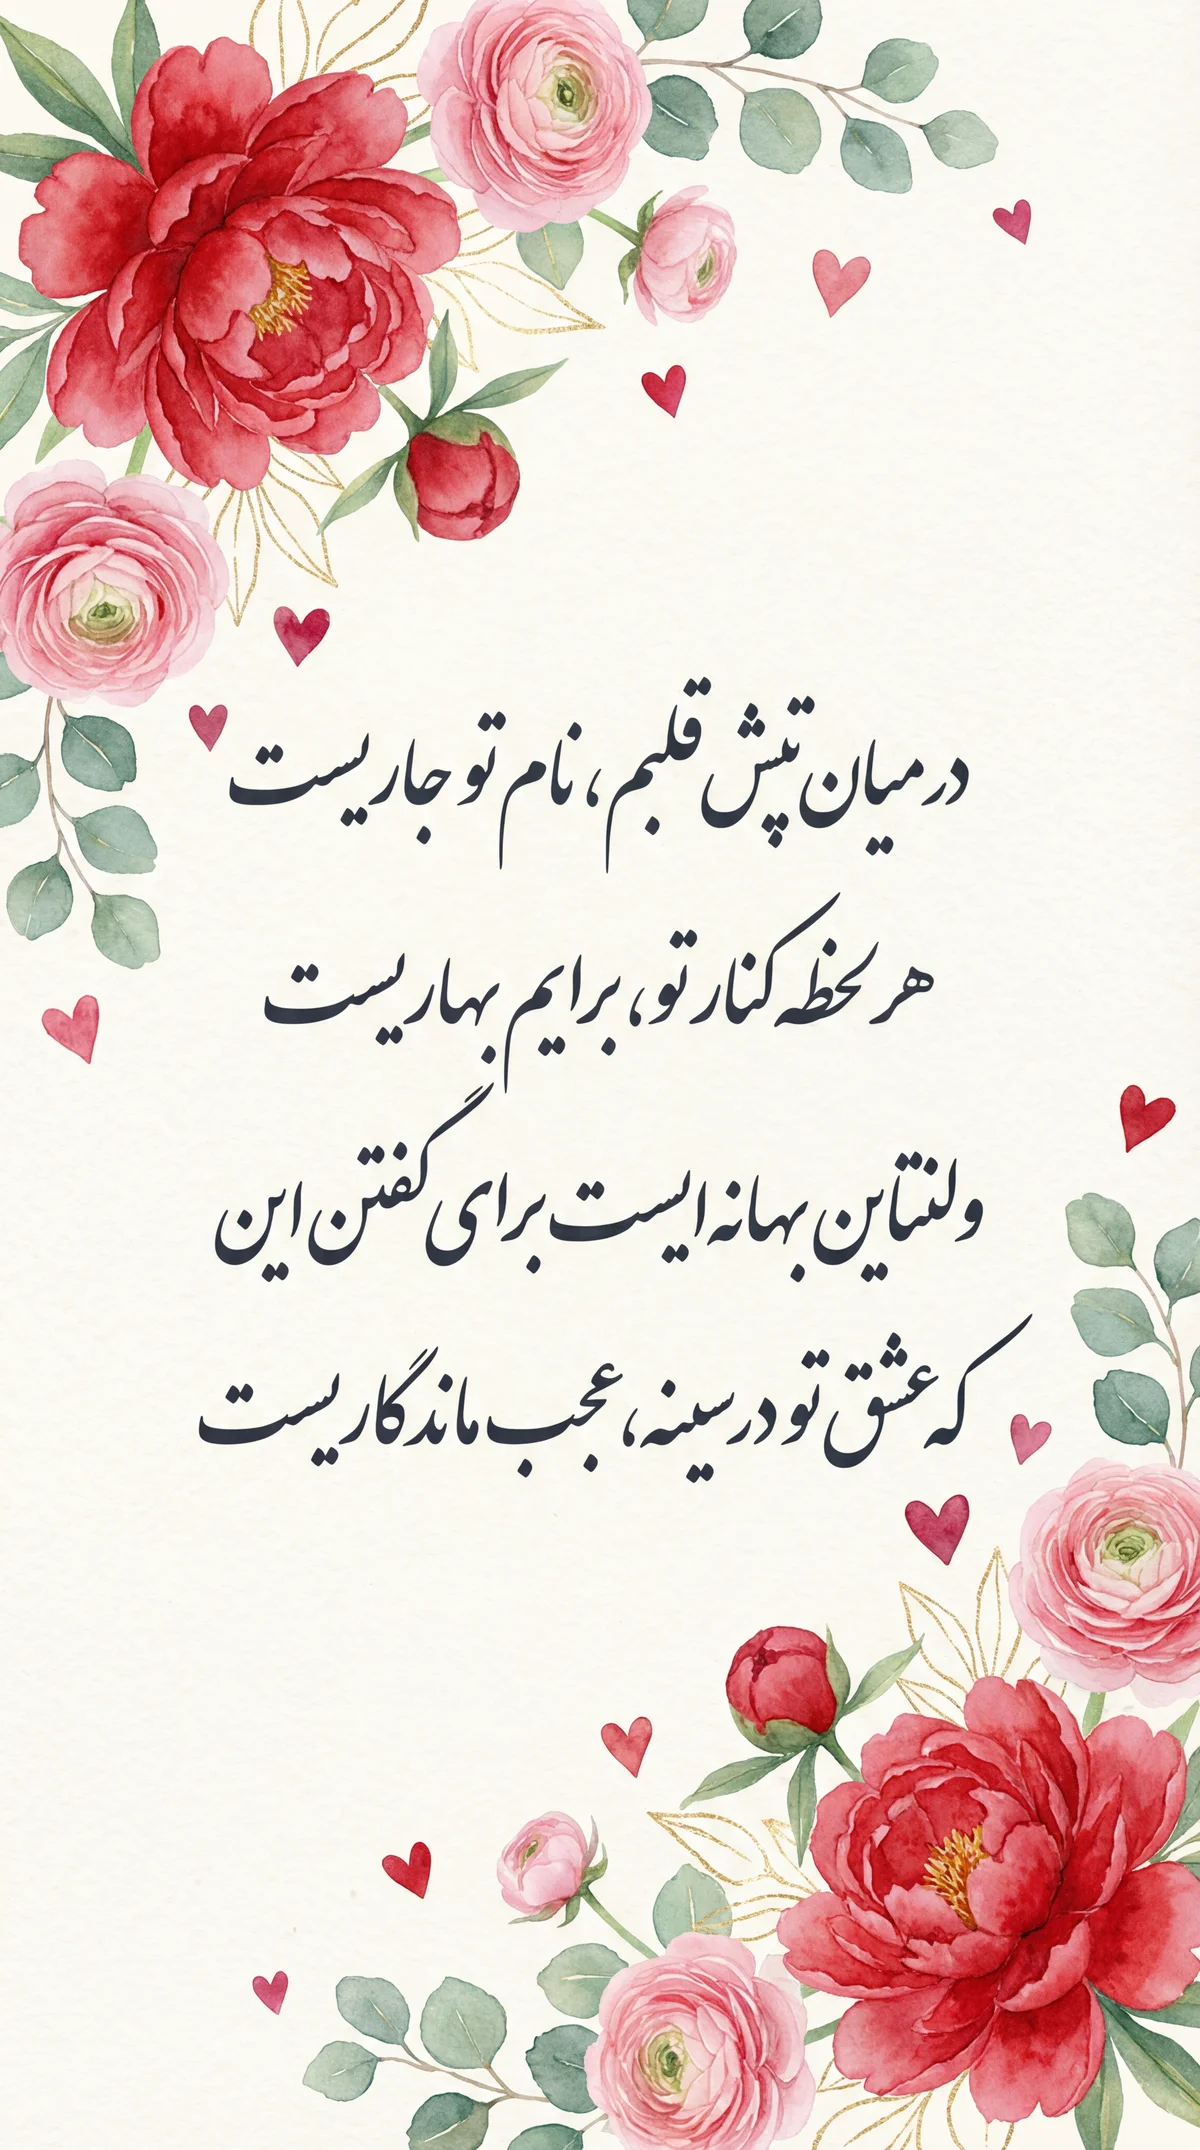 در میان تپش قلبم، نام تو جاریست
هر لحظه کنار تو، برایم بهاریست
ولنتاین بهانه ایست برای گفتن این
که عشق تو در سینه، عجب ماندگاریست